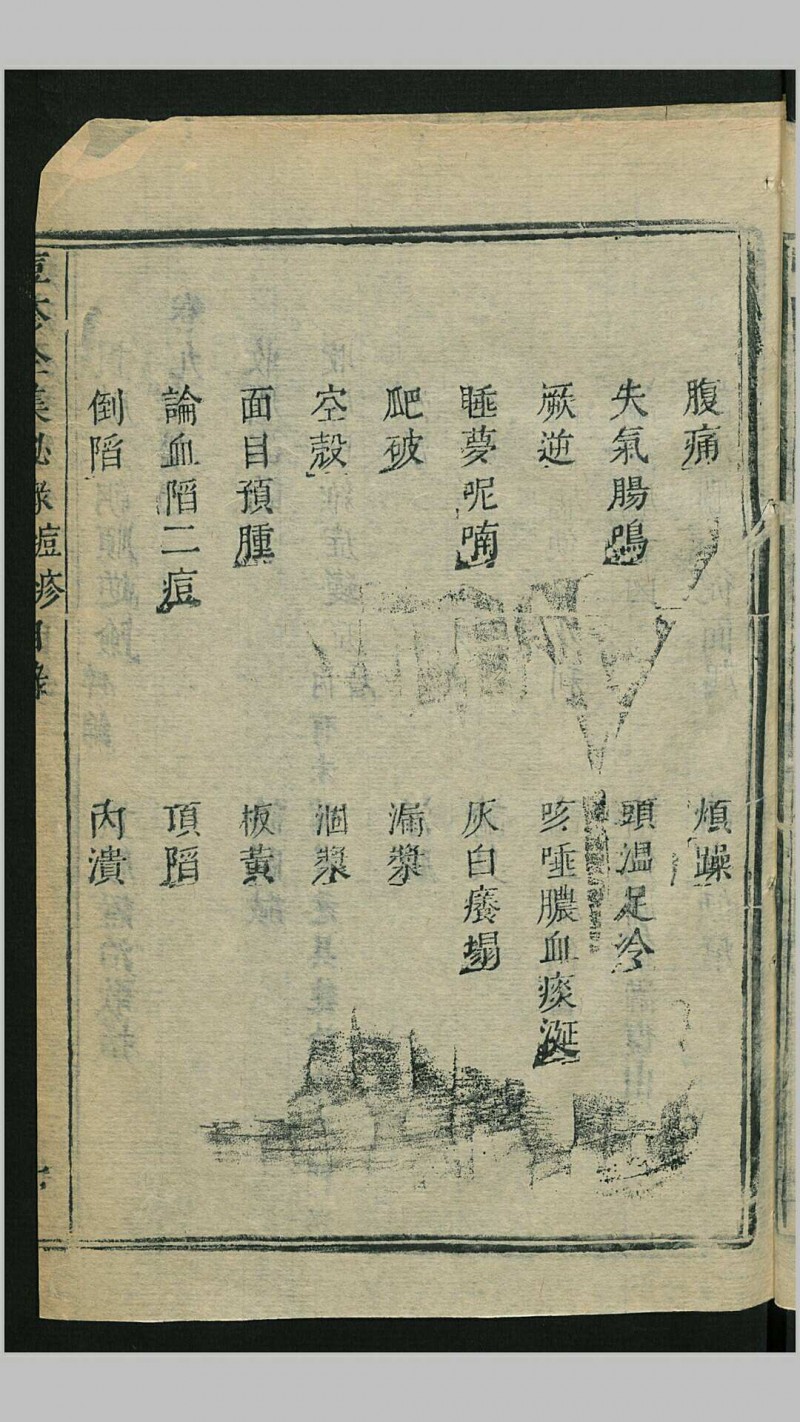 腹痛 煩躁
失氣腸鳴 頭溫足冷
厥逆 咳唾膿血痰涎
睡夢呢喃 灰白癢塌
爬破 漏漿
空殼 涸漿
面目預腫 板黃
論血陷二痘 頂陷
倒陷 內潰
痘疹全集秘錄痘疹目錄